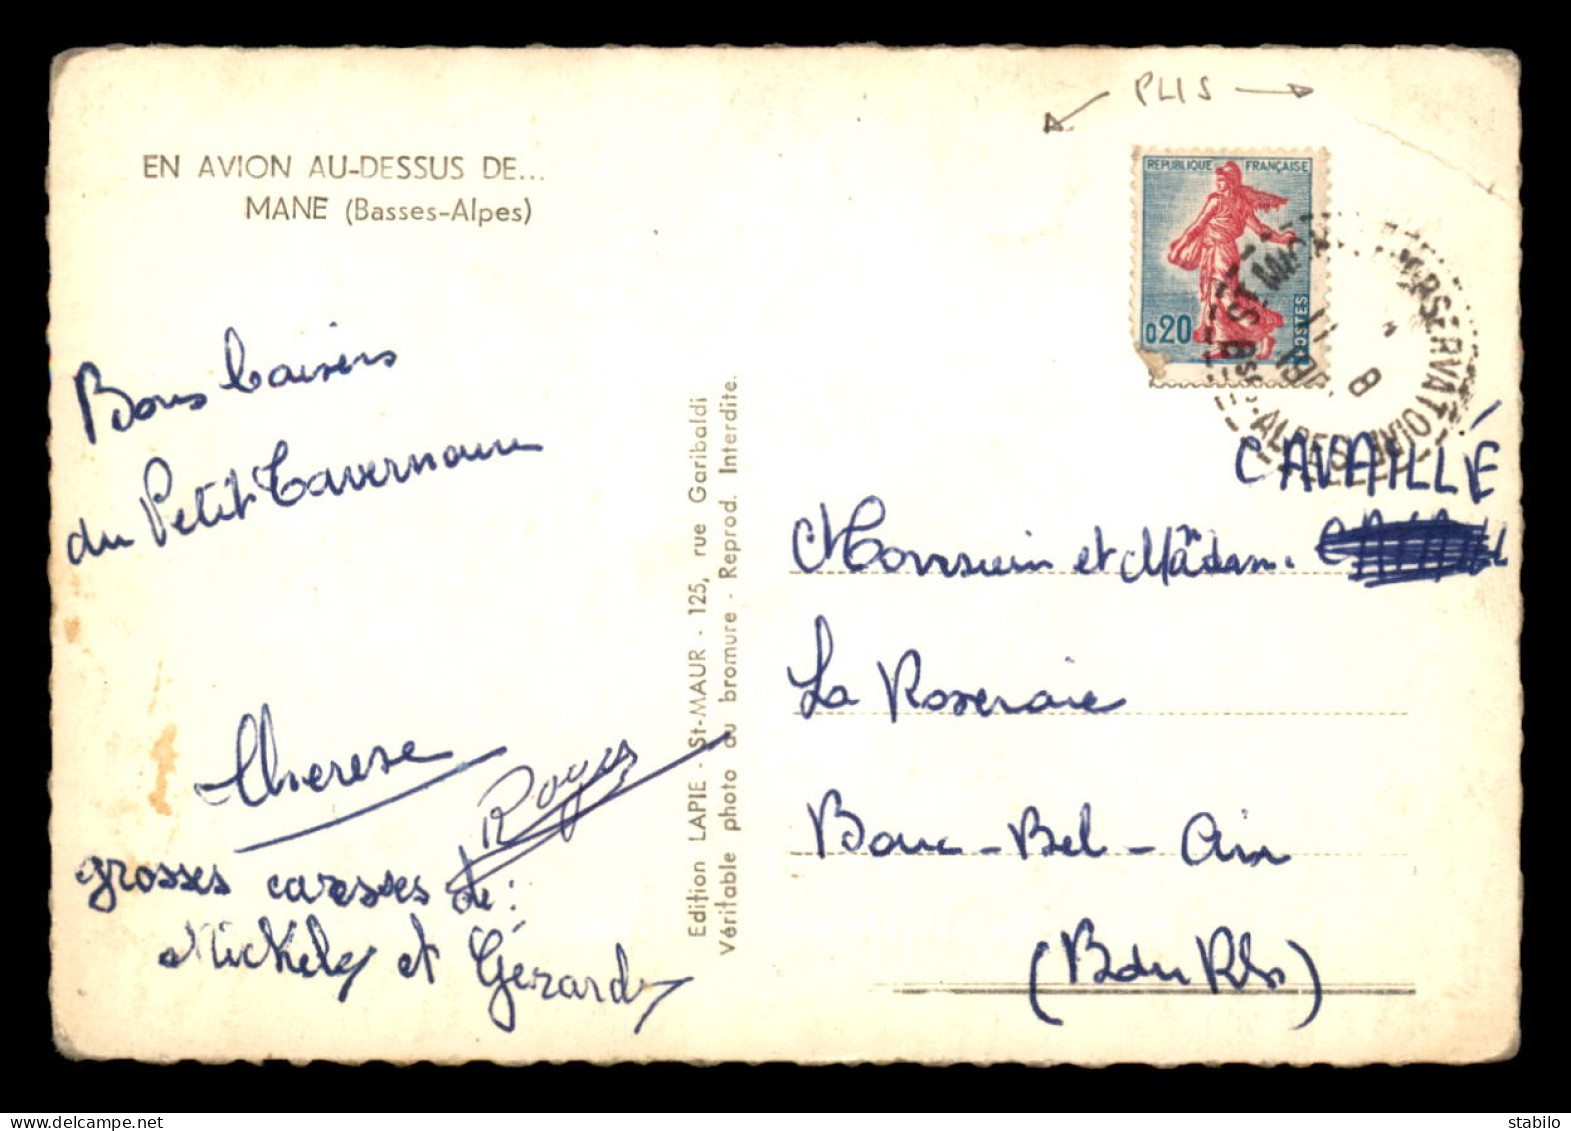 PLIS
EN AVION AU-DESSUS DE...
MANE (Basses-Alpes)
REPUBLIQUE FRANÇAISE
0,20
POSTES
Bons baisers
du Petit Tavernoure
Therese
Roger
grosses caresses de :
Mickely et Gérard
Edition LAPIE - St-MAUR - 125, rue Garibaldi
Véritable photo au bromure - Reprod. Interdite.
CAVAILLÉ
Monsieur et Madam.
La Roseraie
Bouc-Bel-Air
(B du Rh)
stabilo